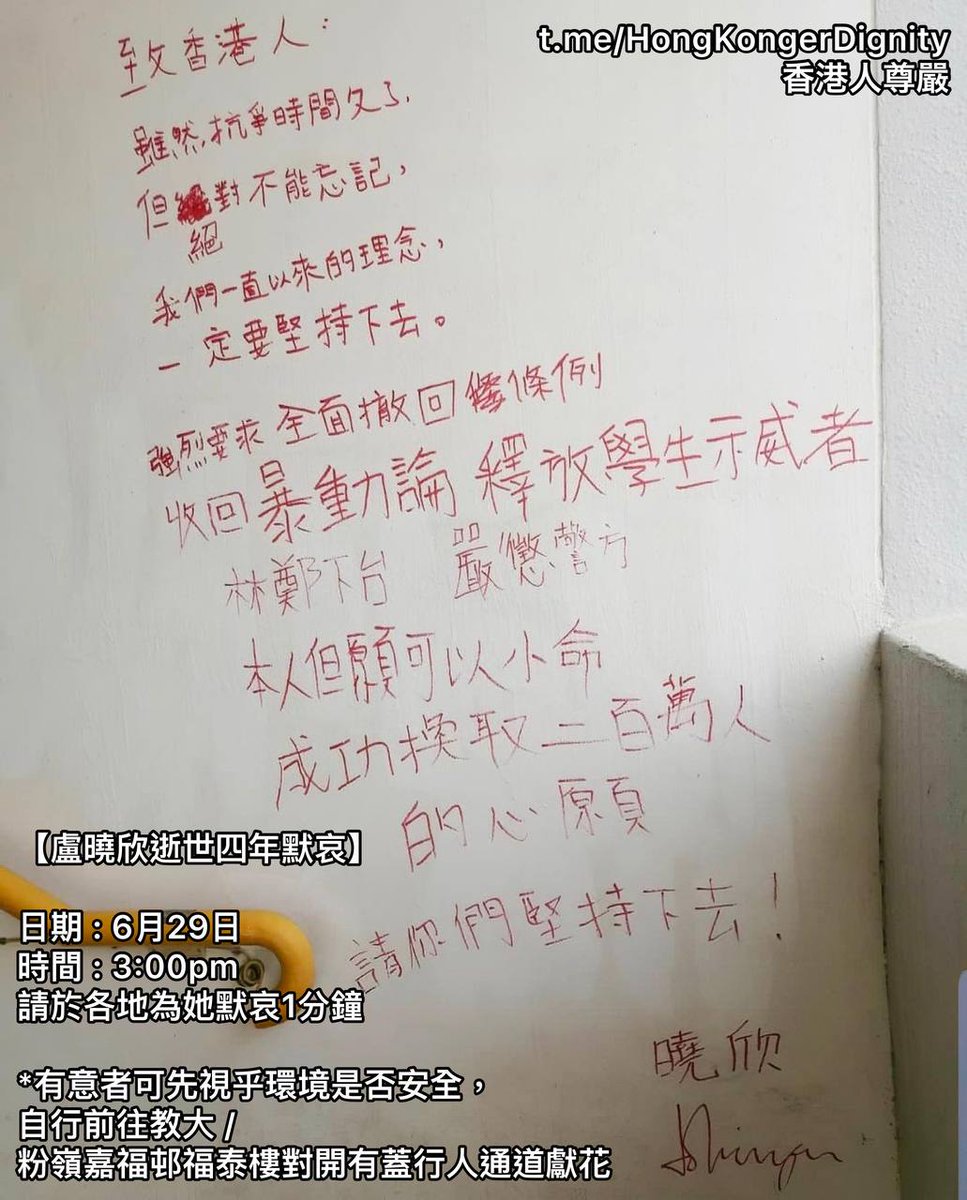 t.me/HongKongerDignity
香港人尊嚴
致香港人：
雖然,抗爭時間久了,
但絕對不能忘記,
我們一直以來的理念,
一定要堅持下去。
強烈要求 全面撤回條例
收回暴動論 釋放學生示威者
林鄭下台 嚴懲警方
本人但願可以小命
成功換取二百萬人
的心願
請你們堅持下去！
曉欣
【盧曉欣逝世四年默哀】
日期：6月29日
時間：3:00pm
請於各地為她默哀1分鐘
*有意者可先視乎環境是否安全，
自行前往教大 /
粉嶺嘉福邨福泰樓對開有蓋行人通道獻花